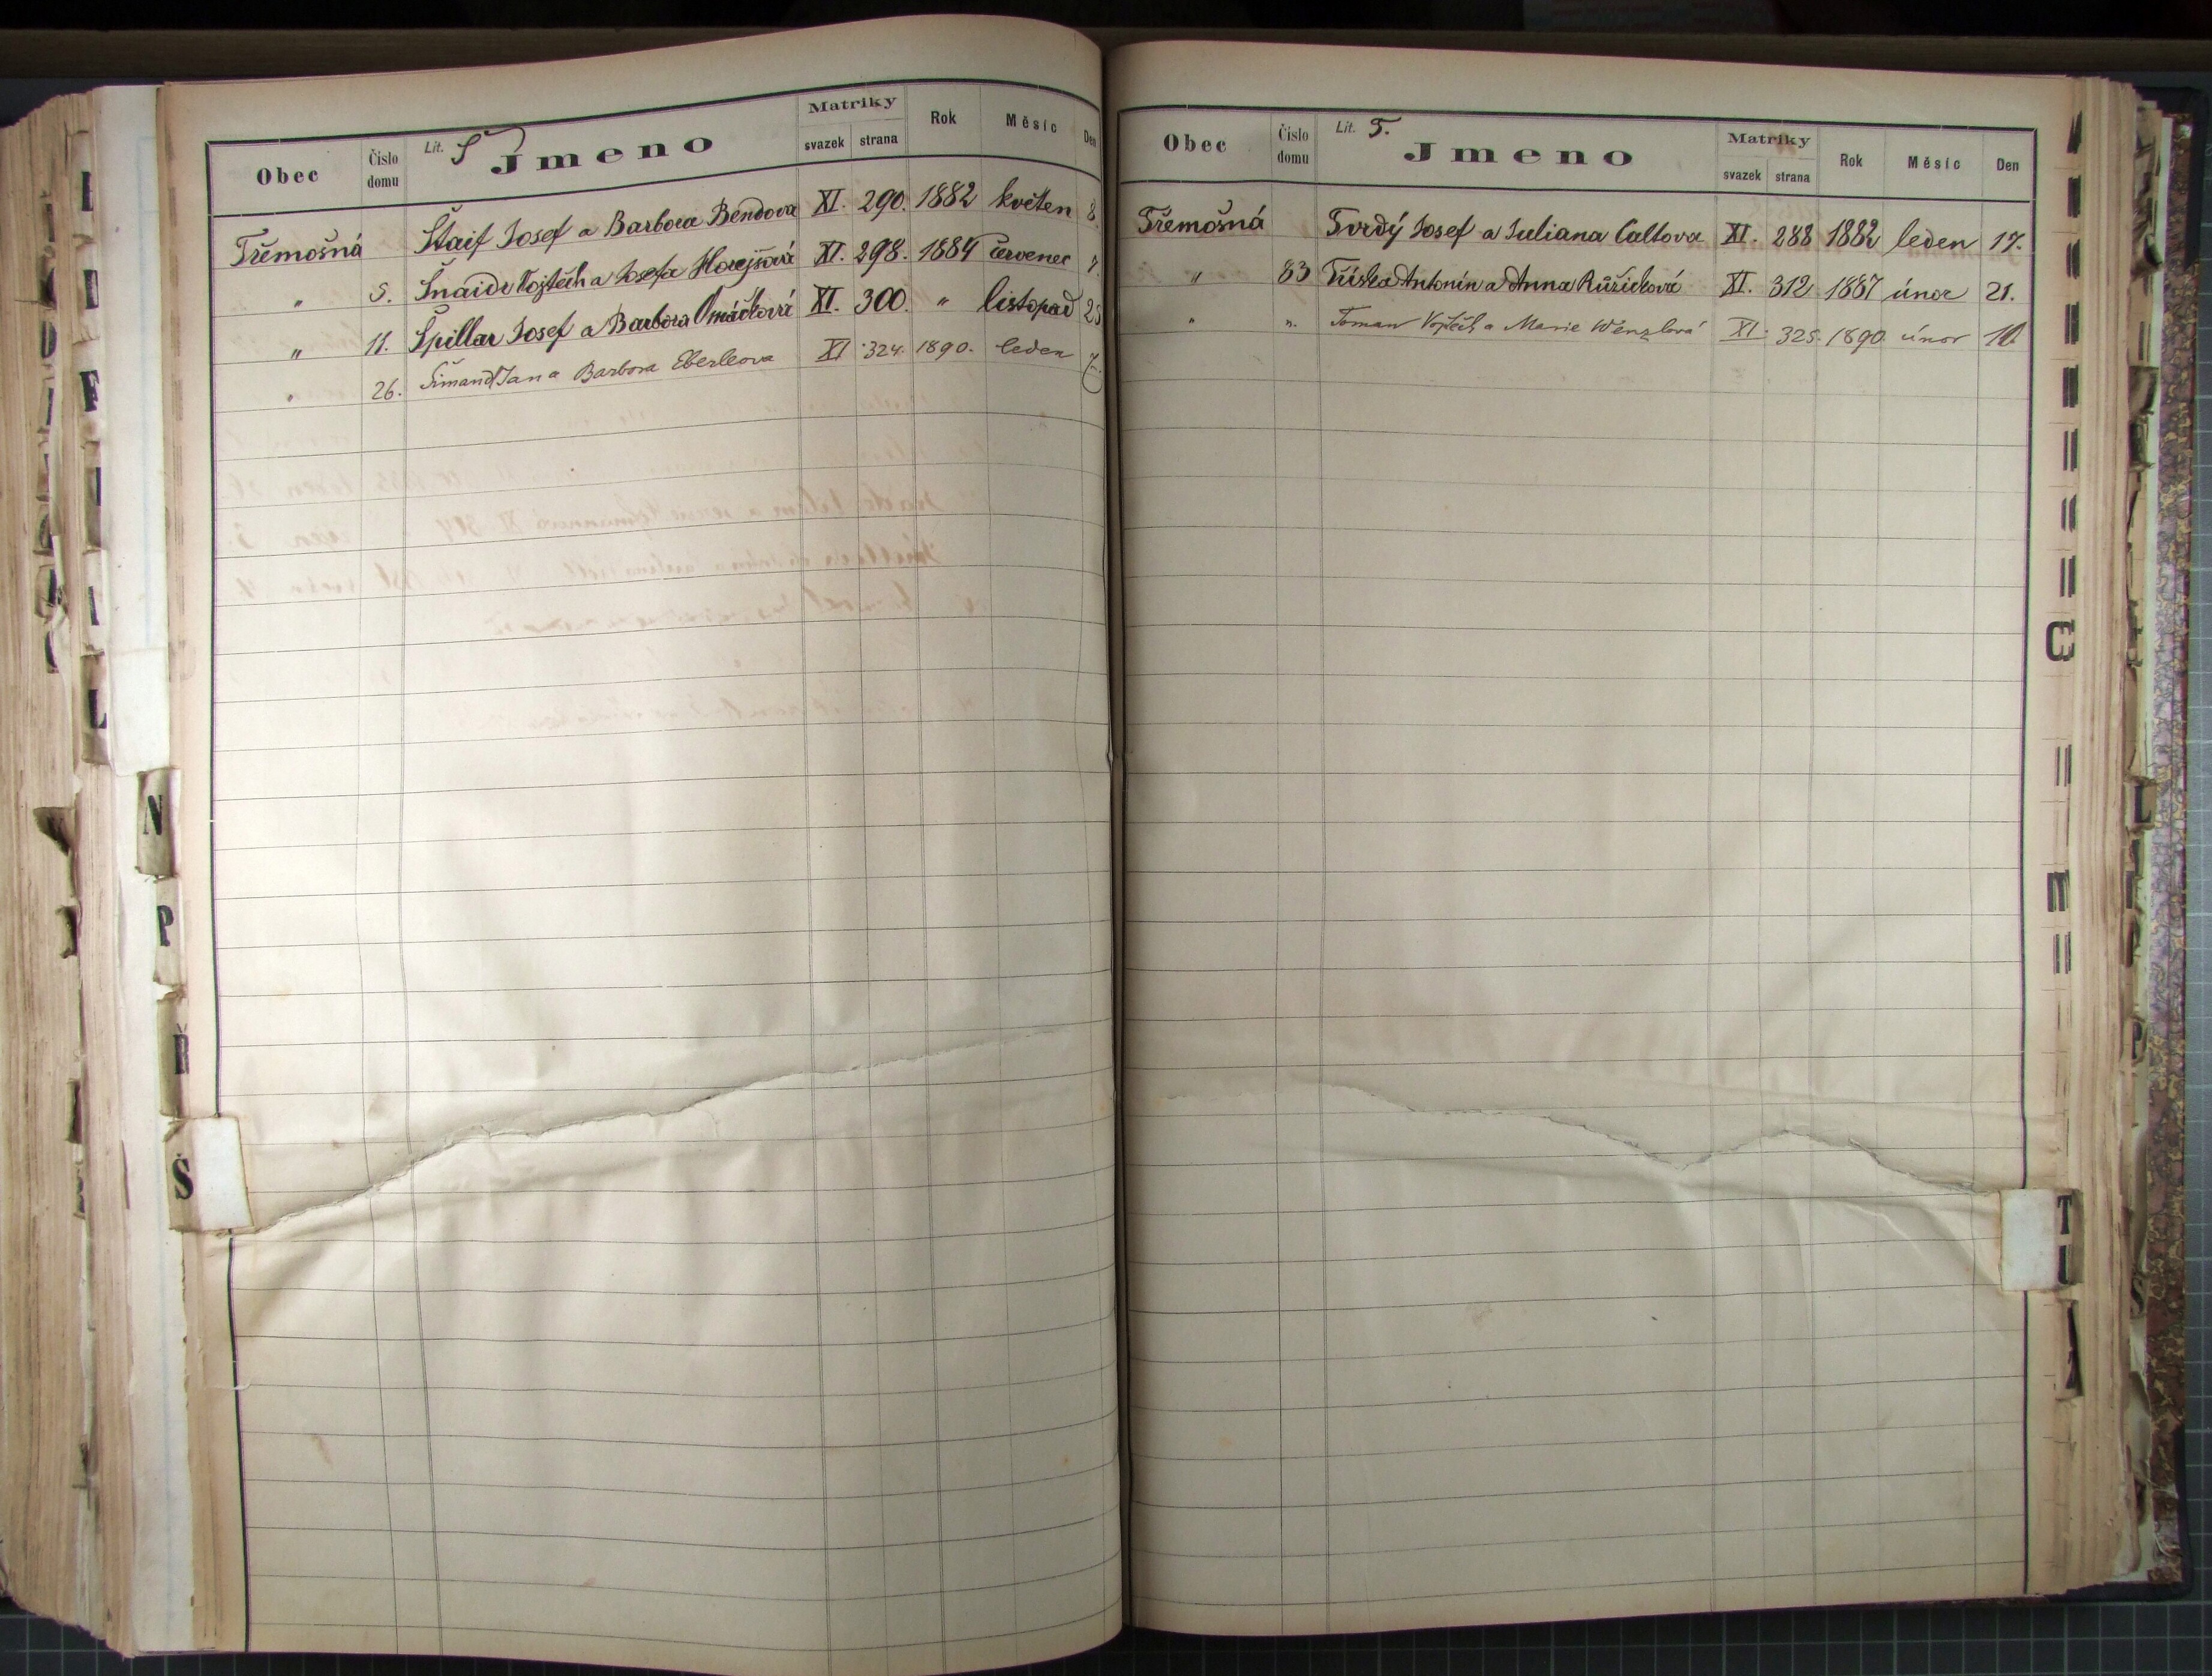 Obec Číslo domu Lit. Š Jmeno Matriky svazek strana Rok Měsíc Den
Třemošná Štaif Josef a Barbora Bendova XI. 290. 1882 květen 8.
" 5. Šnaidr Vojtěch a Josefa Horejšová XI. 298. 1884 červenec
" 11. Špillar Josef a Barbora Omáčková XI. 300. " listopad 25
" 26. Šimand Jan a Barbora Eberleova XI 324. 1890. leden 7.
N
P
Ř
Š
Obec Číslo domu Lit. T. Jmeno Matriky svazek strana Rok Měsíc Den
Třemošná Tvrdý Josef a Juliana Caltova XI. 288 1882 leden 17.
" 83 Tříska Antonín a Anna Růžičková XI. 312 1887 únor 21.
" ". Toman Vojtěch a Marie Wenzlová XI. 325. 1890. únor 10.
T
U